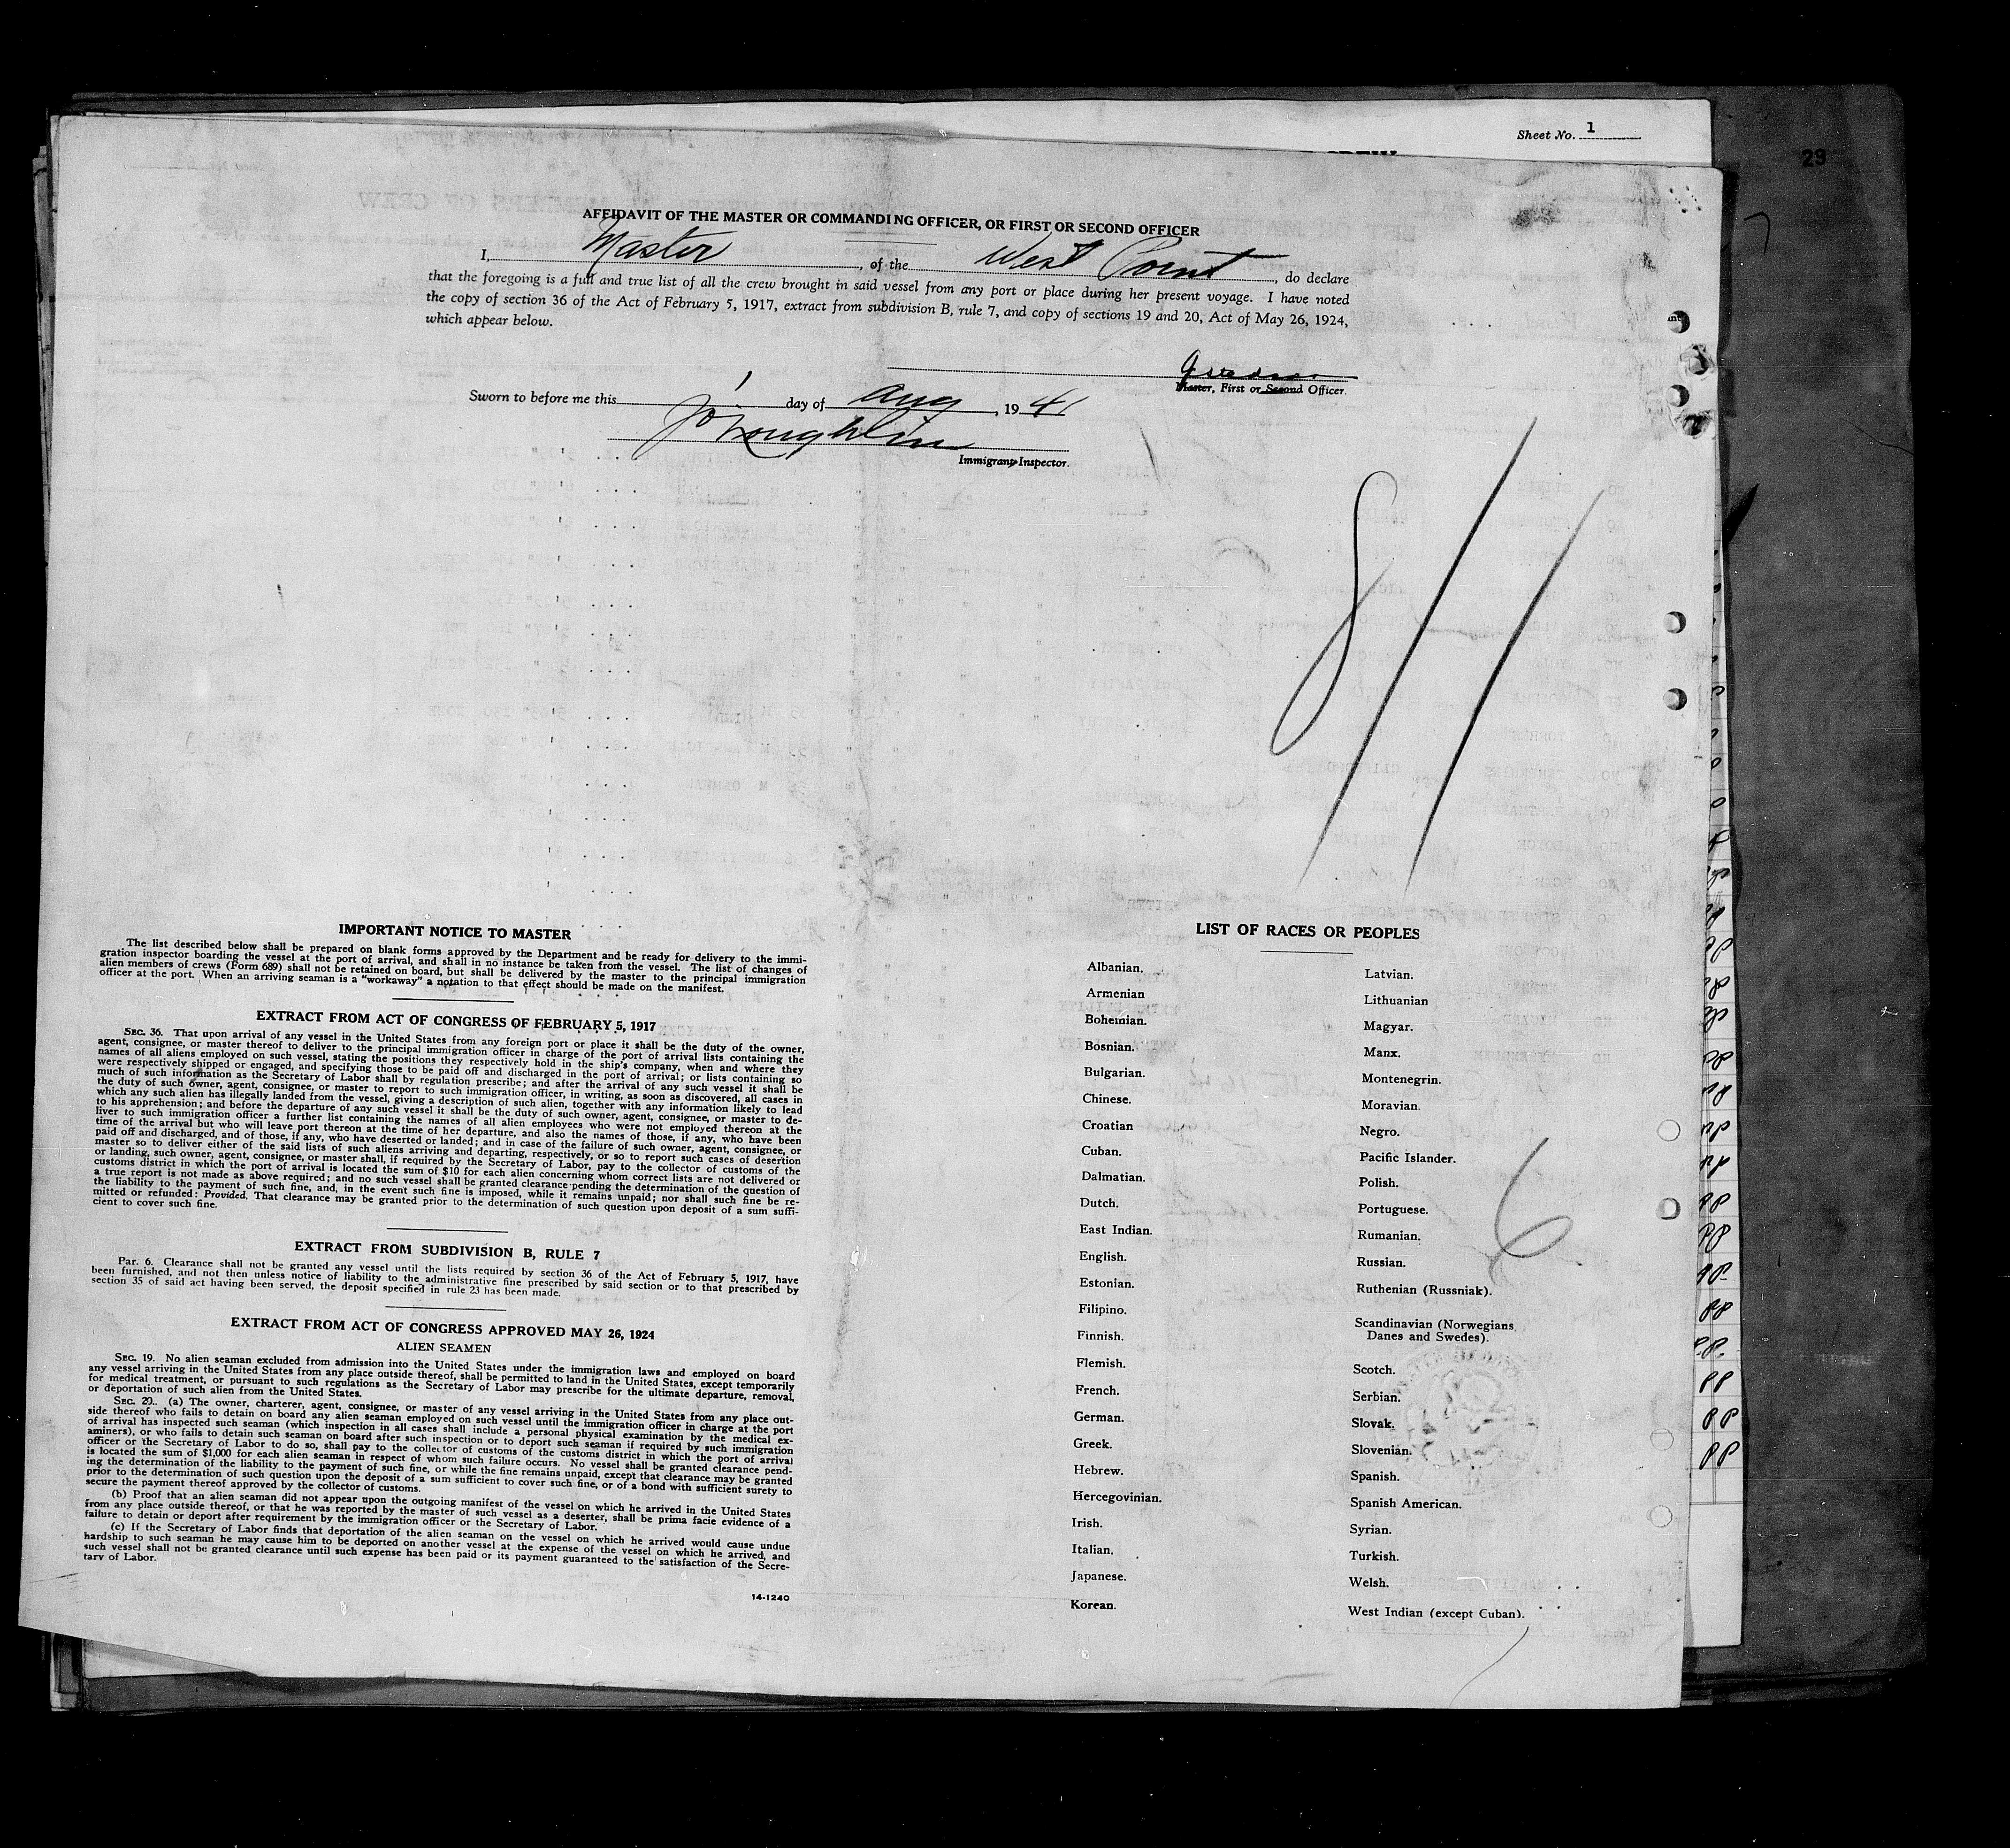 Sheet No. 1
29
AFFIDAVIT OF THE MASTER OR COMMANDING OFFICER, OR FIRST OR SECOND OFFICER
I, Master, of the West Point, do declare
that the foregoing is a full and true list of all the crew brought in said vessel from any port or place during her present voyage. I have noted
the copy of section 36 of the Act of February 5, 1917, extract from subdivision B, rule 7, and copy of sections 19 and 20, Act of May 26, 1924,
which appear below.
Master, First or Second Officer.
Sworn to before me this 1 day of Aug, 1941
Immigrant Inspector.
8/1/
IMPORTANT NOTICE TO MASTER
The list described below shall be prepared on blank forms approved by the Department and be ready for delivery to the immi-
gration inspector boarding the vessel at the port of arrival, and shall in no instance be taken from the vessel. The list of changes of
alien members of crews (Form 689) shall not be retained on board, but shall be delivered by the master to the principal immigration
officer at the port. When an arriving seaman is a "workaway" a notation to that effect should be made on the manifest.
EXTRACT FROM ACT OF CONGRESS OF FEBRUARY 5, 1917
SEC. 36. That upon arrival of any vessel in the United States from any foreign port or place it shall be the duty of the owner,
agent, consignee, or master thereof to deliver to the principal immigration officer in charge of the port of arrival lists containing the
names of all aliens employed on such vessel, stating the positions they respectively hold in the ship's company, when and where they
were respectively shipped or engaged, and specifying those to be paid off and discharged in the port of arrival; or lists containing so
much of such information as the Secretary of Labor shall by regulation prescribe; and after the arrival of any such vessel it shall be
the duty of such owner, agent, consignee, or master to report to such immigration officer, in writing, as soon as discovered, all cases in
which any such alien has illegally landed from the vessel, giving a description of such alien, together with any information likely to lead
to his apprehension; and before the departure of any such vessel it shall be the duty of such owner, agent, consignee, or master to de-
liver to such immigration officer a further list containing the names of all alien employees who were not employed thereon at the
time of the arrival but who will leave port thereon at the time of her departure, and also the names of those, if any, who have been
paid off and discharged, and of those, if any, who have deserted or landed; and in case of the failure of such owner, agent, consignee, or
master so to deliver either of the said lists of such aliens arriving and departing, respectively, or so to report such cases of desertion
or landing, such owner, agent, consignee, or master shall, if required by the Secretary of Labor, pay to the collector of customs of the
customs district in which the port of arrival is located the sum of $10 for each alien concerning whom correct lists are not delivered or
a true report is not made as above required; and no such vessel shall be granted clearance pending the determination of the question of
the liability to the payment of such fine, and, in the event such fine is imposed, while it remains unpaid; nor shall such fine be re-
mitted or refunded: Provided, That clearance may be granted prior to the determination of such question upon deposit of a sum suffi-
cient to cover such fine.
EXTRACT FROM SUBDIVISION B, RULE 7
Par. 6. Clearance shall not be granted any vessel until the lists required by section 36 of the Act of February 5, 1917, have
been furnished, and not then unless notice of liability to the administrative fine prescribed by said section or to that prescribed by
section 35 of said act having been served, the deposit specified in rule 23 has been made.
EXTRACT FROM ACT OF CONGRESS APPROVED MAY 26, 1924
ALIEN SEAMEN
SEC. 19. No alien seaman excluded from admission into the United States under the immigration laws and employed on board
any vessel arriving in the United States from any place outside thereof, shall be permitted to land in the United States, except temporarily
for medical treatment, or pursuant to such regulations as the Secretary of Labor may prescribe for the ultimate departure, removal,
or deportation of such alien from the United States.
SEC. 20. (a) The owner, charterer, agent, consignee, or master of any vessel arriving in the United States from any place out-
side thereof who fails to detain on board any alien seaman employed on such vessel until the immigration officer in charge at the port
of arrival has inspected such seaman (which inspection in all cases shall include a personal physical examination by the medical ex-
aminers), or who fails to detain such seaman on board after such inspection or to deport such seaman if required by such immigration
officer or the Secretary of Labor to do so, shall pay to the collector of customs of the customs district in which the port of arrival
is located the sum of $1,000 for each alien seaman in respect of whom such failure occurs. No vessel shall be granted clearance pend-
ing the determination of the liability to the payment of such fine, or while the fine remains unpaid, except that clearance may be granted
prior to the determination of such question upon the deposit of a sum sufficient to cover such fine, or of a bond with sufficient surety to
secure the payment thereof approved by the collector of customs.
(b) Proof that an alien seaman did not appear upon the outgoing manifest of the vessel on which he arrived in the United States
from any place outside thereof, or that he was reported by the master of such vessel as a deserter, shall be prima facie evidence of a
failure to detain or deport after requirement by the immigration officer or the Secretary of Labor.
(c) If the Secretary of Labor finds that deportation of the alien seaman on the vessel on which he arrived would cause undue
hardship to such seaman he may cause him to be deported on another vessel at the expense of the vessel on which he arrived, and
such vessel shall not be granted clearance until such expense has been paid or its payment guaranteed to the satisfaction of the Secre-
tary of Labor.
14-1240
LIST OF RACES OR PEOPLES
Albanian.
Armenian
Bohemian.
Bosnian.
Bulgarian.
Chinese.
Croatian
Cuban.
Dalmatian.
Dutch.
East Indian.
English.
Estonian.
Filipino.
Finnish.
Flemish.
French.
German.
Greek.
Hebrew.
Hercegovinian.
Irish.
Italian.
Japanese.
Korean.
Latvian.
Lithuanian
Magyar.
Manx.
Montenegrin.
Moravian.
Negro.
Pacific Islander.
Polish.
Portuguese.
Rumanian.
Russian.
Ruthenian (Russniak).
Scandinavian (Norwegians,
Danes and Swedes).
Scotch.
Serbian.
Slovak.
Slovenian.
Spanish.
Spanish American.
Syrian.
Turkish.
Welsh.
West Indian (except Cuban).
6